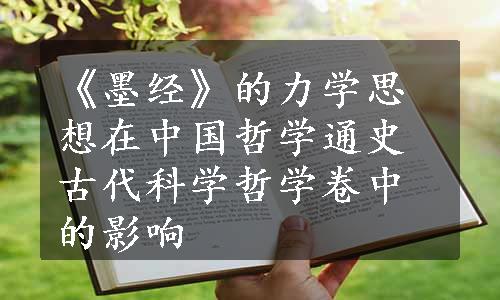 《墨经》的力学思
想在中国哲学通史
古代科学哲学卷中
的影响